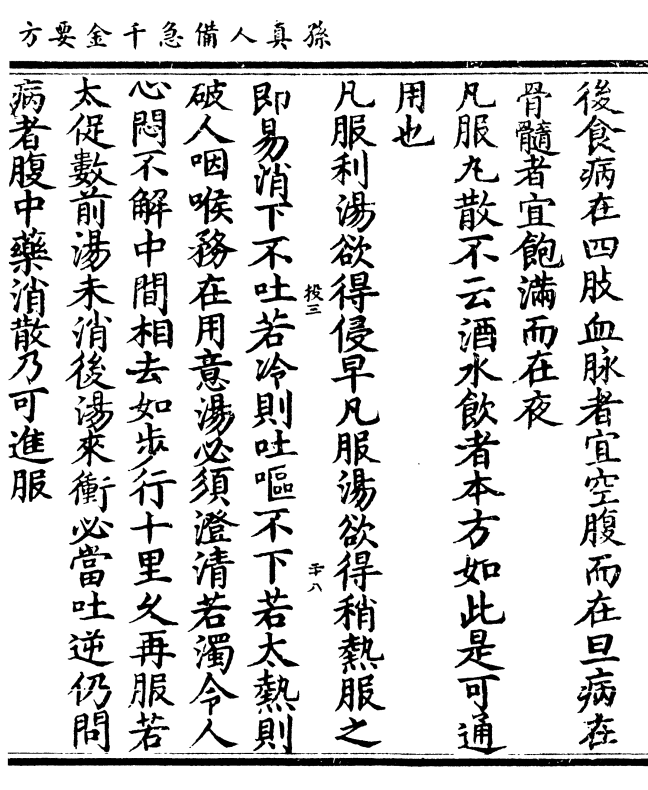 孫真人備急千金要方
後食病在四肢血脉者宜空腹而在旦病在
骨髓者宜飽滿而在夜
凡服丸散不云酒水飲者本方如此是可通
用也
凡服利湯欲得侵早凡服湯欲得稍熱服之
投三
平八
即易消下不吐若冷則吐嘔不下若太熱則
破人咽喉務在用意湯必須澄清若濁令人
心悶不解中間相去如步行十里久再服若
太促數前湯未消後湯來衝必當吐逆仍問
病者腹中藥消散乃可進服